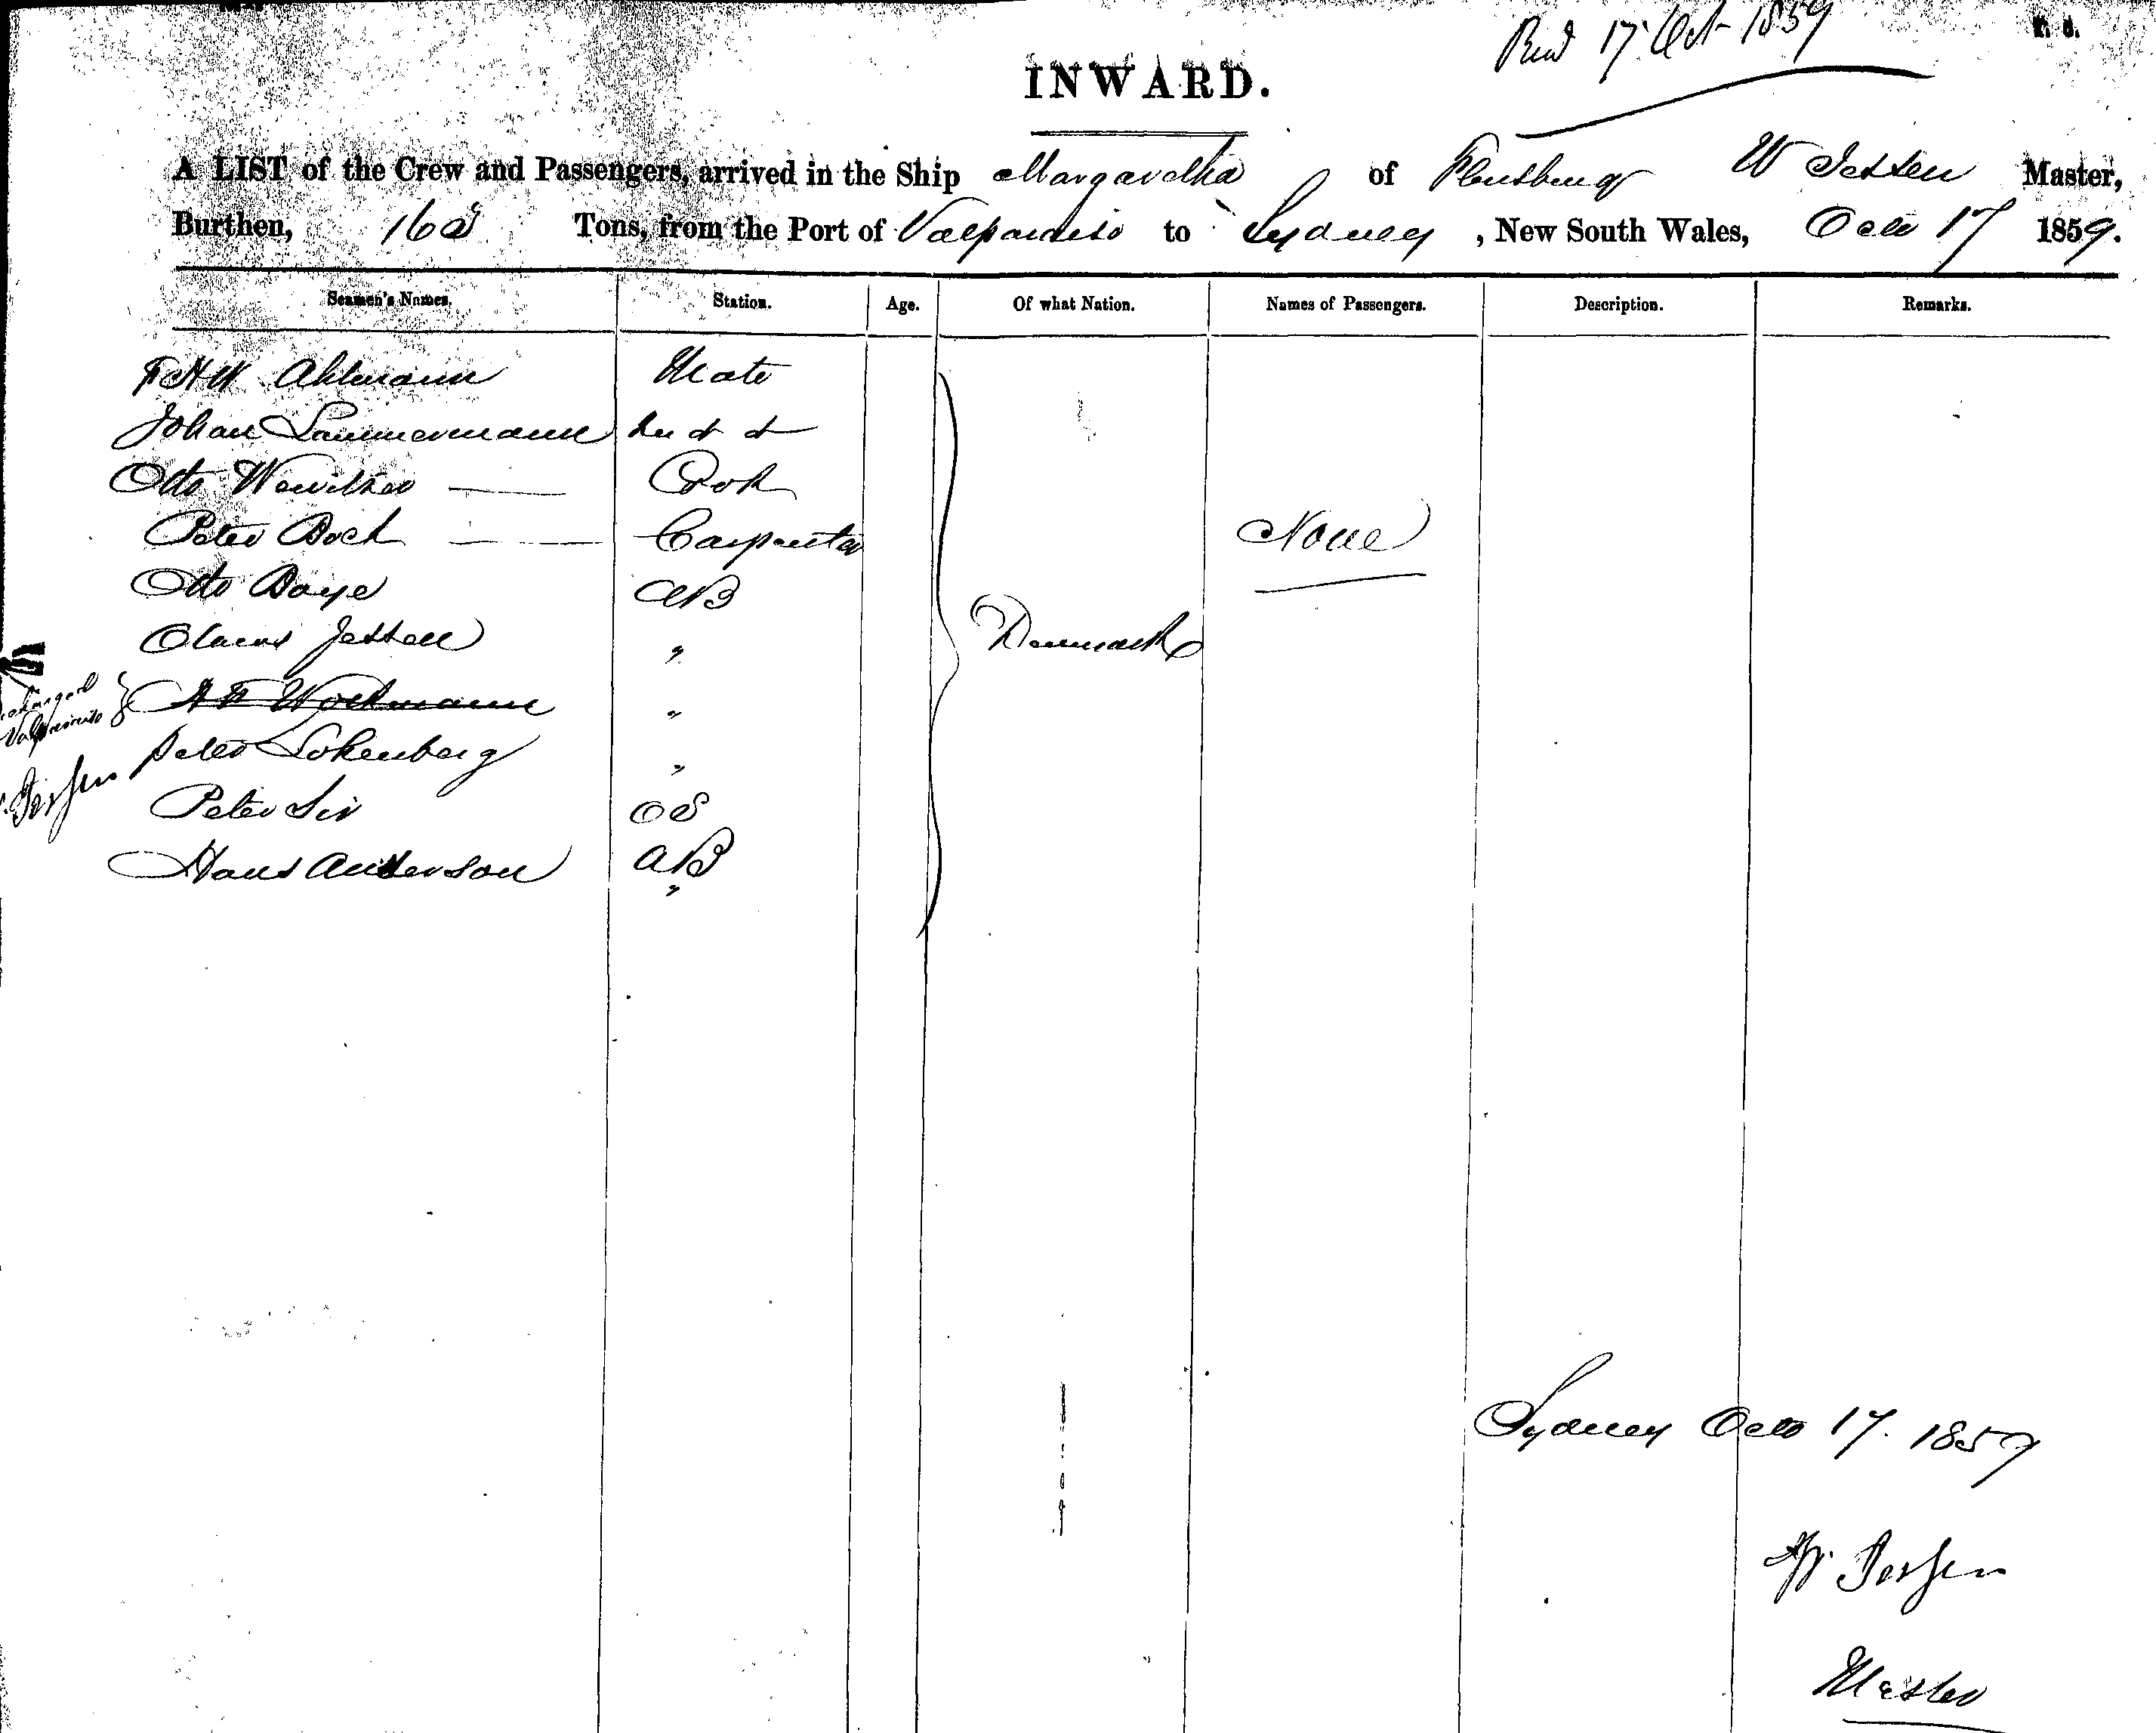 Recd 17 Oct 1859
INWARD.
A LIST of the Crew and Passengers, arrived in the Ship Margaretha of Flensburg W Jessen Master,
Burthen, 168 Tons, from the Port of Valparaiso to Sydney, New South Wales, Octo 17 1859.
Seamen's Names. Station. Age. Of what Nation. Names of Passengers. Description. Remarks.
Ahlmann Mate
Johan Lammermann
Otto Cook
Peter Bock Carpenter None
Otto Boye AB
Jessen " Denmark
Valparaiso "
Peter Lokenberg "
Jessen
Peter OS
Hans Anderson AB
"
Sydney Octo 17. 1859
W. Jessen
Master